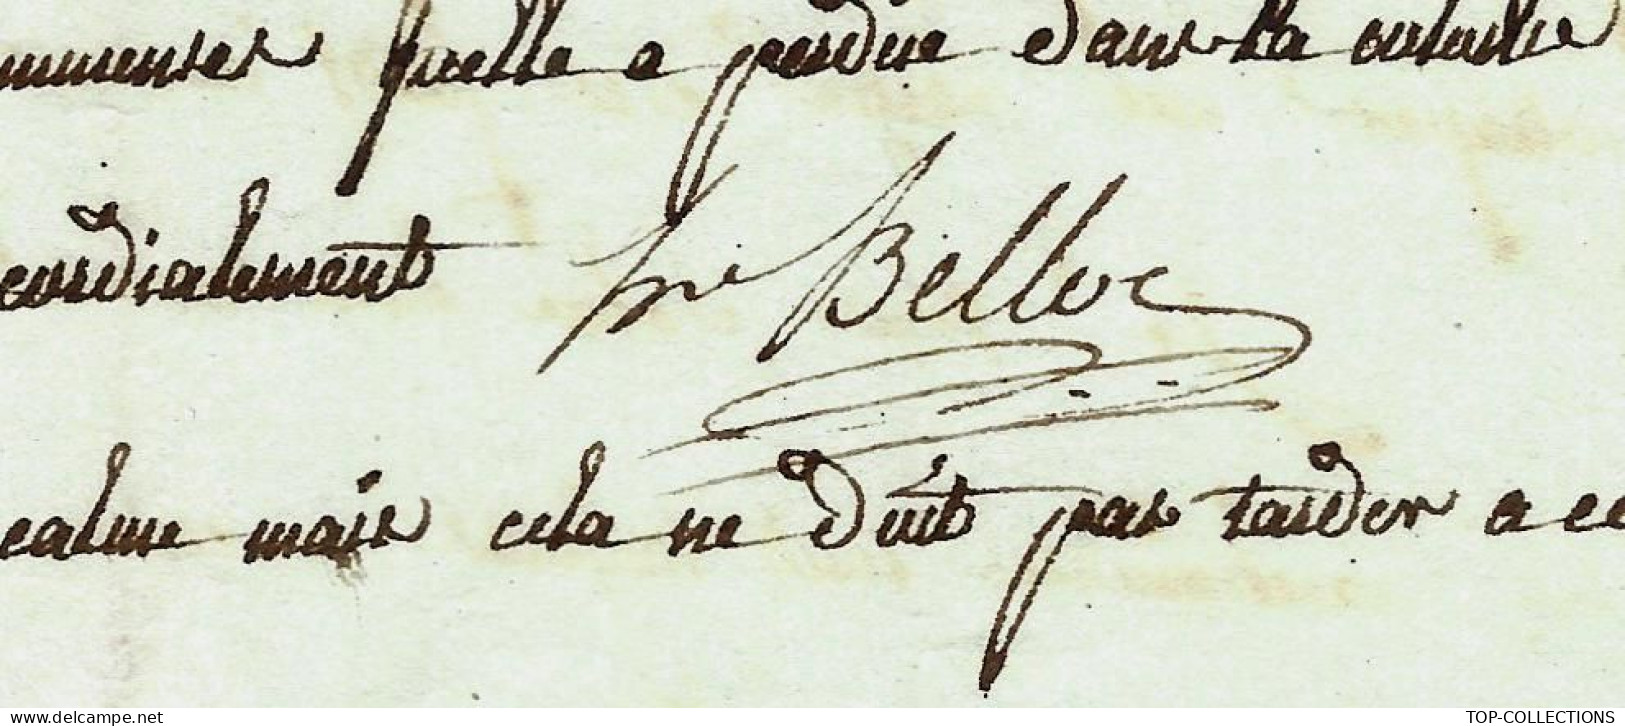 immenses quelle a perdue dans la
cordialement hre Belloc
calme mais cela ne doit pas tarder a ce
www.delcampe.net
TOP-COLLECTIONS